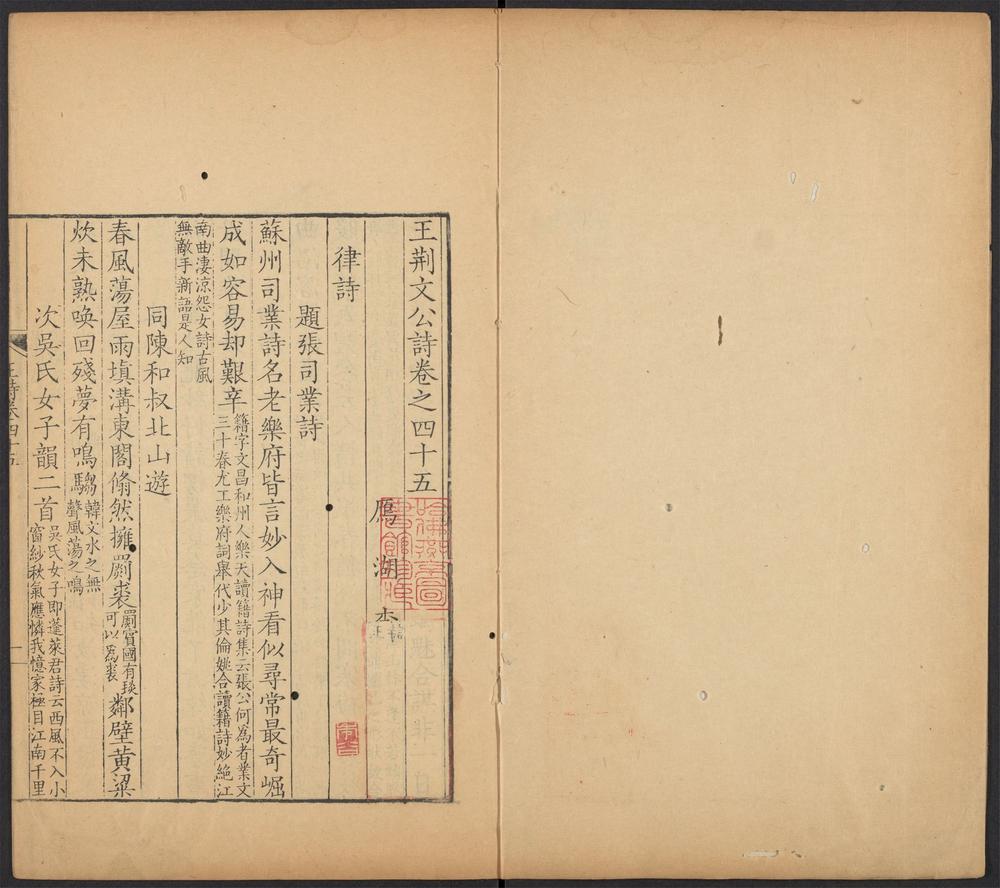 王荆文公詩卷之四十五
鴈湖李
律詩
題張司業詩
蘇州司業詩名老樂府皆言妙入神看似尋常最奇崛
成如容易却艱辛
籍字文昌和州人樂天讀籍詩集云張公何為者業文
三十春尤工樂府詞舉代少其倫姚合讀籍詩妙絕江
南曲淒涼怨女詩古風
無敵手新語是人知
同陳和叔北山遊
春風蕩屋雨填溝東閣翛然擁罽裘
罽賓國有琰
可以為裘
鄰壁黃粱
炊未熟喚回殘夢有鳴騶
韓文水之無
聲風蕩之鳴
次吳氏女子韻二首
吳氏女子即蓬萊君詩云西風不入小
窗紗秋氣應憐我憶家極目江南千里